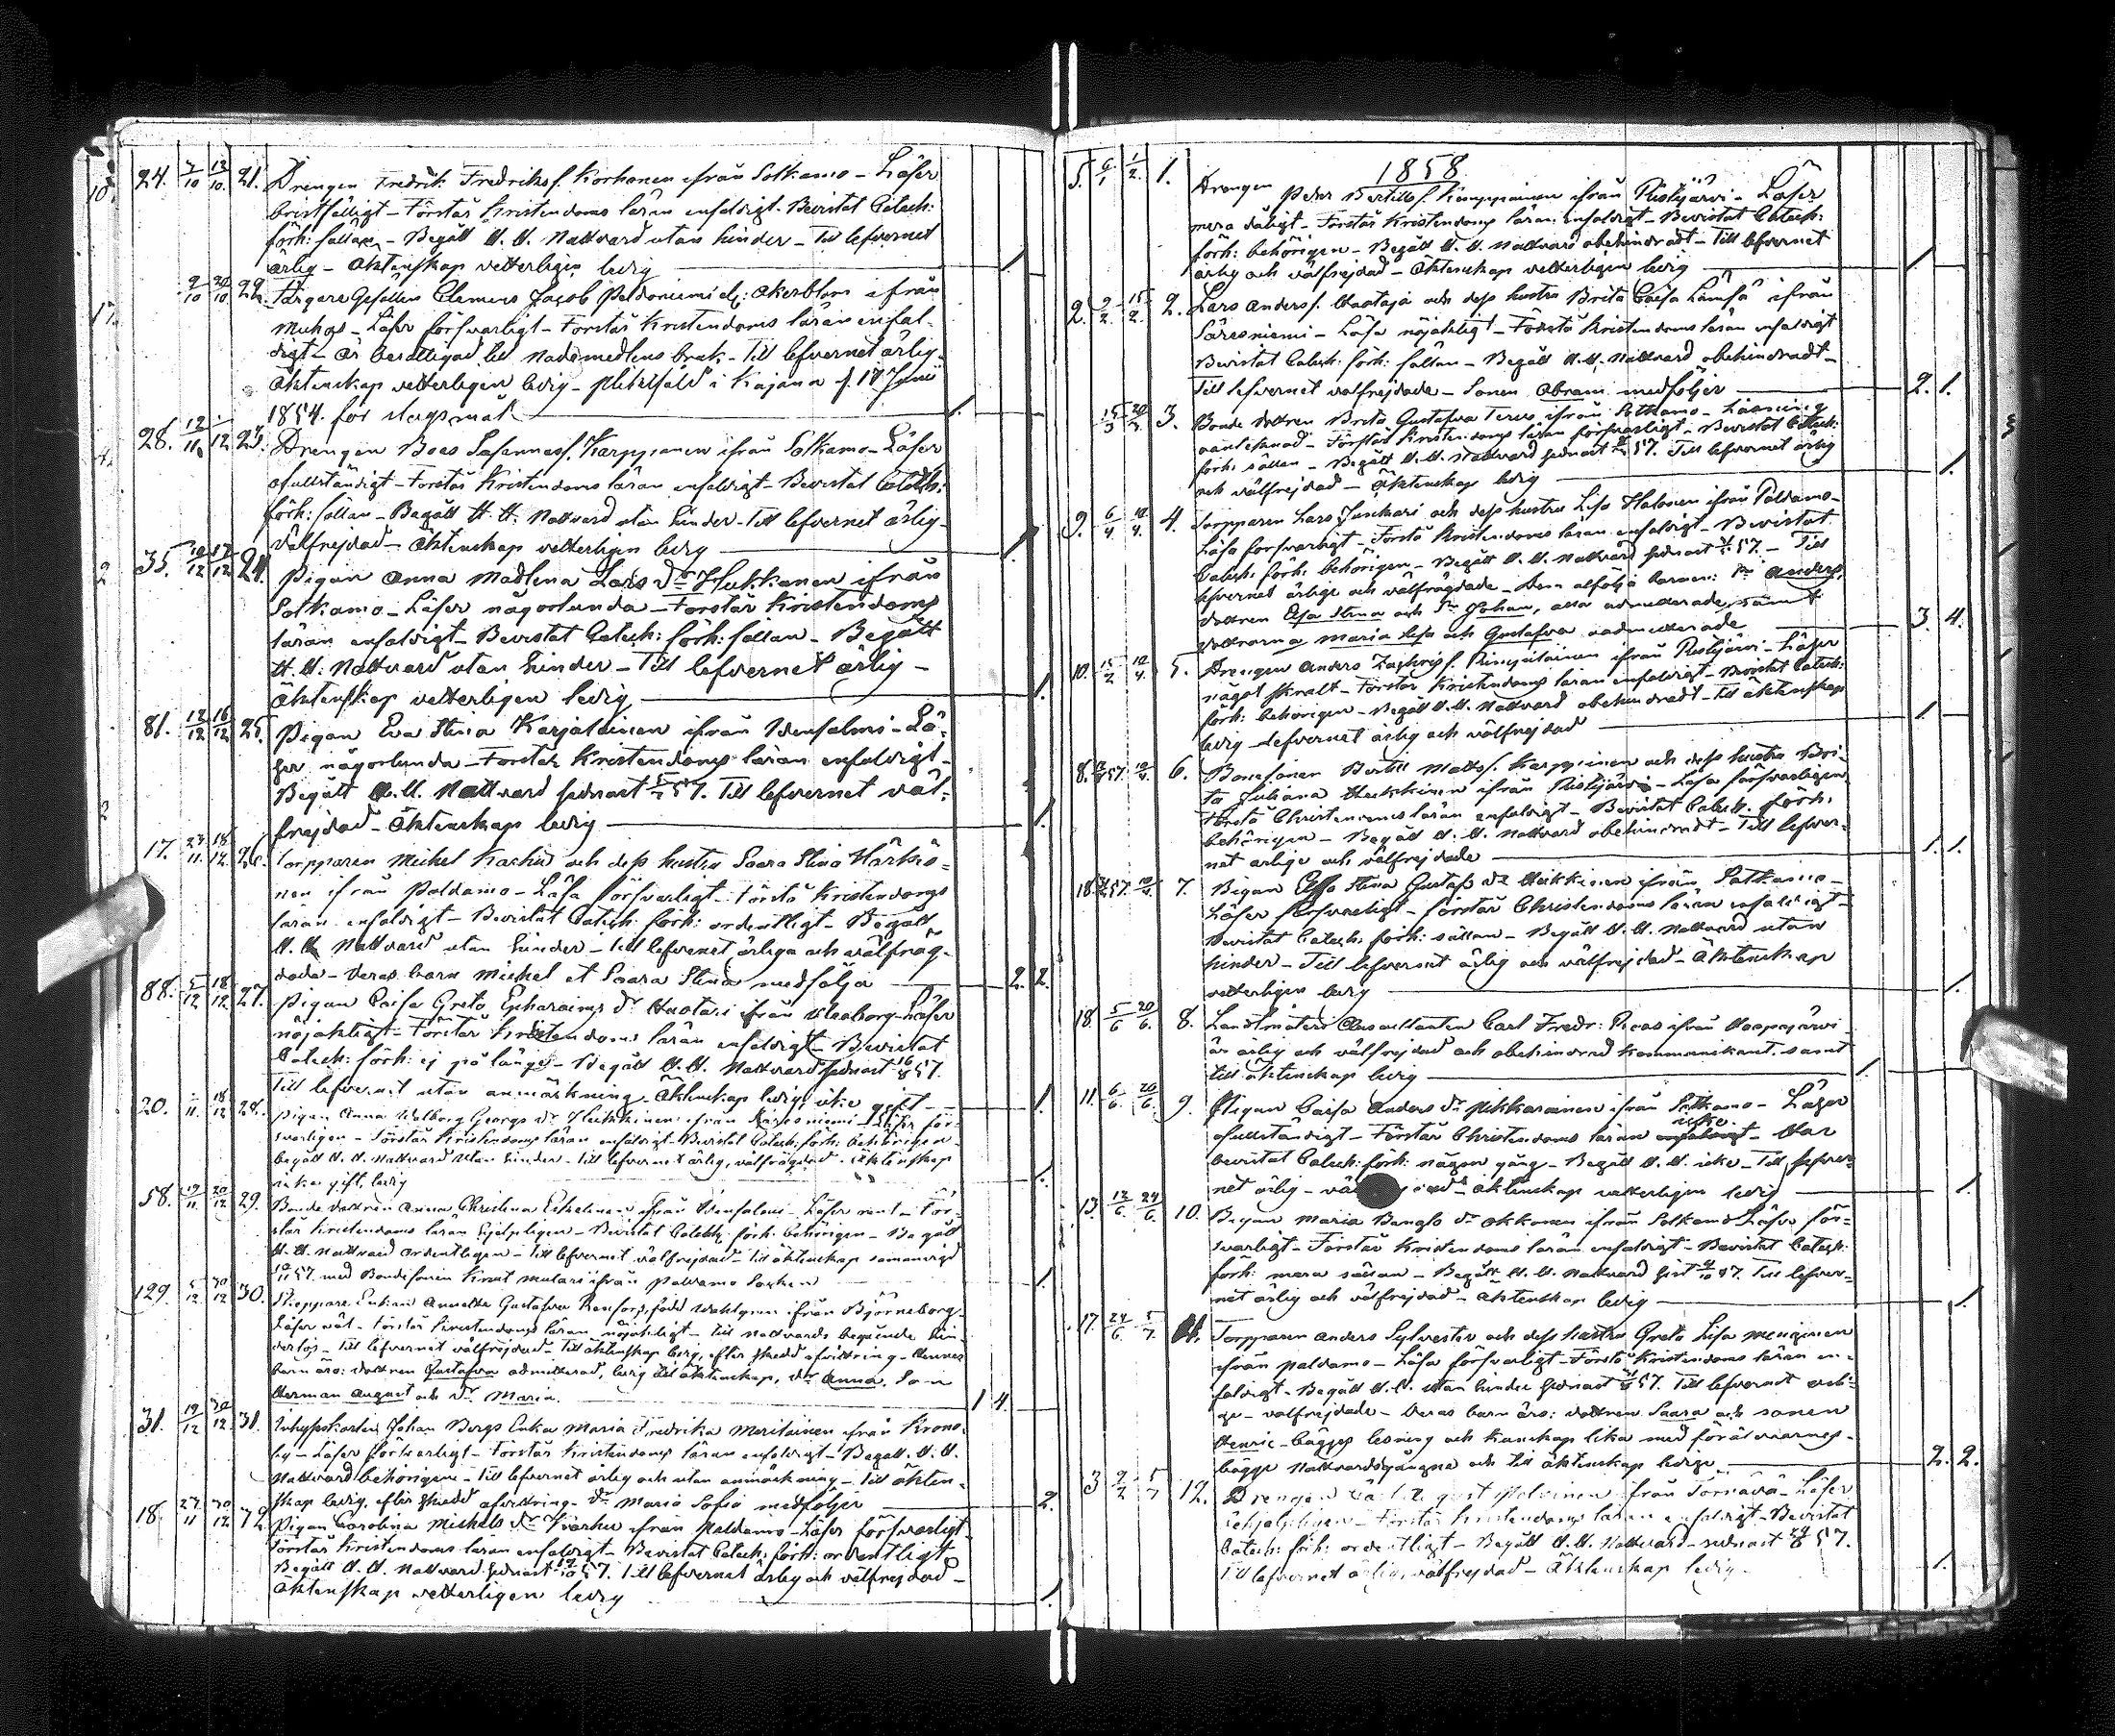 24. 7/10 13/10. 21. Drengen Fredrik Fredrikss. Korhonen ifrån Sotkamo - Läser
bristfälligt - Förstår Kristendoms läran enfaldigt. Bevistat Catech:
förh: sällan - Begått H. H. Nattvard utan hinder - Till lefvernet
ärlig - Äktenskap vetterligen ledig 1.
9/10 20/10 22. Färgare Gesällen Clemens Jacob Paldaniemi el: Åkerblom ifrån
Muhos - Läser försvarligt - Förstår Kristendoms läran enfal-
digt - Är berättigad till Nådemedlens bruk - Till lefvernet ärlig -
Äktenskap vetterligen ledig - i Kajana d. 17 Junii
1854. för slagsmål 1.
28. 12/11. 12. 23. Drengen Boas Karppinen ifrån Sotkamo - Läser
ofullständigt - Förstår Kristendoms läran enfaldigt - Bevistat Catech:
förh: sällan - Begått H. H. Nattvard utan hinder - Till lefvernet ärlig -
Välfrejdad - Äktenskap vetterligen ledig 1.
35. 10/12 12/12 24. Pigan Anna Madlena Lars dr Hukkanen ifrån
Sotkamo - Läser någorlunda - Förstår Kristendoms
läran enfaldigt - Bevistat Catech: förh: sällan - Begått
H. H: Nattvard utan hinder - Till lefvernet ärlig -
Äktenskap vetterligen ledig 1.
81. 12/12 16/12 25. Pigan Eva Stina Karjalainen ifrån Idensalmi - Lä-
ser någorlunda - Förstår Kristendoms läran enfaldigt -
Begått H. H. Nattvard sednast 57. Till lefvernet väl-
frejdad - Äktenskap ledig 1.
17. 27/11. 18/12. 26. Torpparen Michel Karhu och dess hustru Saara Stina Härkö-
nen ifrån Paldamo - Läsa försvarligt - Förstå Kristendoms
läran enfaldigt - Bevistat Catech: förh: ordentligt - Begått
H. H. Nattvard utan hinder - Till lefvernet ärliga och välfräg-
dade - Deras barn Michel et Saara Stina medfölja 2. 2.
88. 5/12 18/12 27. Pigan Caisa Greta Ephraims dr Huotari ifrån Uleåborg - Läser
nöjaktigt - Förstår Kristendoms läran enfaldigt - Bevistat
Catech: förh: ej på länge - Begått H. H. Nattvard sednast 16/8 57.
Till lefvernet utan anmärkning - Äktenskap ledig, icke gift 1.
20. 11. 18/12 28. Pigan Anna Walborg Georgs dr Heikkinen ifrån Säresniemi - Läser för-
svarligen - Förstår Kristendoms läran enfaldigt - Bevistat Catech: förh: behörigen -
begått H. H. Nattvard utan hinder - till lefvernet ärlig, välfrägdad - Äktenskap
icke gift, ledig 1.
58. 19/11 20/12 29. Bonde dottren Anna Christina ifrån Idensalmi - Läser rent - För-
står Kristendoms läran hjelpligen - Bevistat Catech: förh: behörigen - Begått
H. H. Nattvard ordentligen - Till lefvernet välfrejdad - Till äktenskap
57. med Bondesonen Knut Mulari ifrån Paldamo Socken 1.
129. 5/12 30/12 30. Skeppare Enkan Annetta Gustafva Renfors, född Wahlgren ifrån Björneborg -
Läser väl - Förstår Kristendoms läran nöjaktigt - Till Nattvards begående hin-
derlös - Till lefvernet välfrejdad - Till äktenskap ledig, efter skedd afvittring - Hennes
barn äro: dottren Gustafva admitterad, ledig till äktenskap, dr Anna, Son
Herman August och dr Maria. 1 4.
31. 19/12 30/12 31. Johan Bergs Enka Maria Fredrika Meriläinen ifrån Krono-
by - Läser försvarligt - Förstår Kristendoms läran enfaldigt - Begått H. H.
Nattvard behörigen - Till lefvernet ärlig och utan anmärkning - Till äkten-
skap ledig, efter skedd afvittring - dr Maria Sofia medföljer 2.
18. 27/11 30/12 32. Pigan Carolina Michels dr Karhu ifrån Paldamo - Läser försvarligt -
Förstår Kristendoms läran enfaldigt - Bevistat Catech: förh: ordentligt
Begått H. H. Nattvard sednast 57. Till lefvernet ärlig och välfrejdad -
Äktenskap vetterligen ledig 1.
1858.
5. 6/1 1/2. 1. Drengen Peter Bertills. Karppinen ifrån Ristijärvi - Läser
mera dåligt - Förstår Kristendoms läran enfaldigt - Bevistat Catech:
förh: behörigen - Begått H. H. Nattvard obehindradt - Till lefvernet
ärlig och välfrejdad - Äktenskap vetterligen ledig 1.
2. 9/2. 15/2. 2. Lars Anderss. Haataja och dess hustru Brita Caisa Lämsä ifrån
Säresniemi - Läsa nöjaktigt - Förstå Kristendoms läran enfaldigt
Bevistat Catech: förh: sällan - Begått H. H. Nattvard obehindradt -
Till lefvernet välfrejdade - Sonen Abram medföljer 2. 1.
3. Bonde dottren Brita Gustafva Tervo ifrån Sotkamo - Läsning
antecknad - Förstår Kristendoms läran försvarligt - Bevistat Catech:
förh: sällan - Begått H. H. Nattvard sednast 57. Till lefvernet ärlig
och välfrejdad - Äktenskap ledig 1.
9. 6/4 12/4. 4. Torpparen Lars Junkari och dess hustru Lisa Halonen ifrån Paldamo -
Läsa försvarligt - Förstå Kristendoms läran enfaldigt - Bevistat
Catech: förh: behörigen - Begått H. H. Nattvard sednast 57. - Till
lefvernet ärlige och välfrägdade - Dem åtfölja barnen: Sn Anders,
dottren Elsa Stina och Sn Johan, alla admitterade, samt
döttrarna Maria Lisa och Gustafva oadmitterade 3. 4.
10. 15/2 12/4. 5. Drengen Anders Zachris s. Rimpiläinen ifrån Ristijärvi - Läser
något skralt - Förstår Kristendoms läran enfaldigt - Bevistat Catech:
förh: behörigen - Begått H. H. Nattvard obehindradt - Till äktenskap
ledig - Lefvernet ärlig och välfrejdad 1.
8. 57. 6. Bondesonen Bertill Matts s. Karppinen och dess hustru Bri-
ta Juliana Heikkinen ifrån Ristijärvi - Läsa försvarligen
Förstå Christendoms läran enfaldigt - Bevistat Catech. förh.
behörigen - Begått H. H. Nattvard obehindradt - Till lefver-
net ärlige och välfrejdade 1. 1.
18. 57. 7. Pigan Elsa Stina Gustafs dr Heikkinen ifrån Sotkamo -
Läser försvarligt - förstår Christendoms läran enfaldigt -
Bevistat Catech. förh: sällan - Begått H. H. Nattvard utan
hinder - Till lefvernet ärlig och välfrejdad - Äktenskap
vetterligen ledig 1.
18. 5/6 20/6. 8. Landtmäteri Auscultanten Carl Fredr: ifrån
är ärlig och välfrejdad och obehindrad kommunikant, samt
till äktenskap ledig 1.
11. 6/6 20/6. 9. Pigan Caisa Anders dr Pikkarainen ifrån Sotkamo - Läser
ofullständigt - Förstår Christendoms läran icke - Har
bevistat Catech: förh: någon gång - Begått H. H. icke - Till lefver-
net ärlig - Äktenskap vetterligen ledig 1.
13. 12/6. 24/6. 10. Pigan Maria dr Akkonen ifrån Sotkamo - Läser för-
svarligt - Förstår Kristendoms läran enfaldigt - Bevistat Catech:
förh: mera sällan - Begått H. H. Nattvard sist 57. Till lefver-
net ärlig och välfrejdad - Äktenskap ledig 1.
17. 24/6. 5/7. 11. Torpparen Anders Sylvester och dess hustru Greta Lisa Menginen
ifrån Paldamo - Läsa försvarligt - Förstå Kristendoms läran en-
faldigt - Begått H. H. utan hinder sednast 57. Till lefvernet ärli-
ge - välfrejdade - Deras barn äro: dottren Saara och sonen
Henric - bägges läsning och kunskap lika med föräldrarnes -
bägge Nattvardsgångna och till äktenskap ledige 2. 2.
3 9/2 5/7 12. Drengen ifrån Törnävä - Läser
- Förstår Kristendoms läran enfaldigt - Bevistat
Catech: förh: ordentligt - Begått H. H. Nattvard - sednast 57.
Till lefvernet ärlig, välfrejdad - Äktenskap ledig. 1.